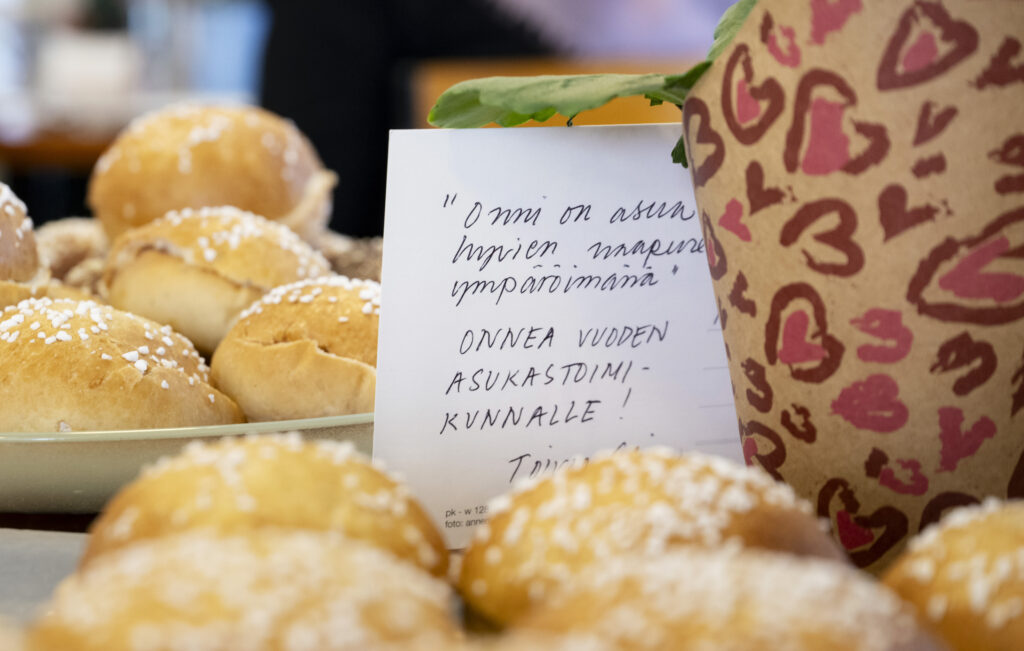 "Onni on asua
hyvien naapure
ympäröimänä"
ONNEA VUODEN
ASUKASTOIMI-
KUNNALLE!
pk - w 128
foto: anne